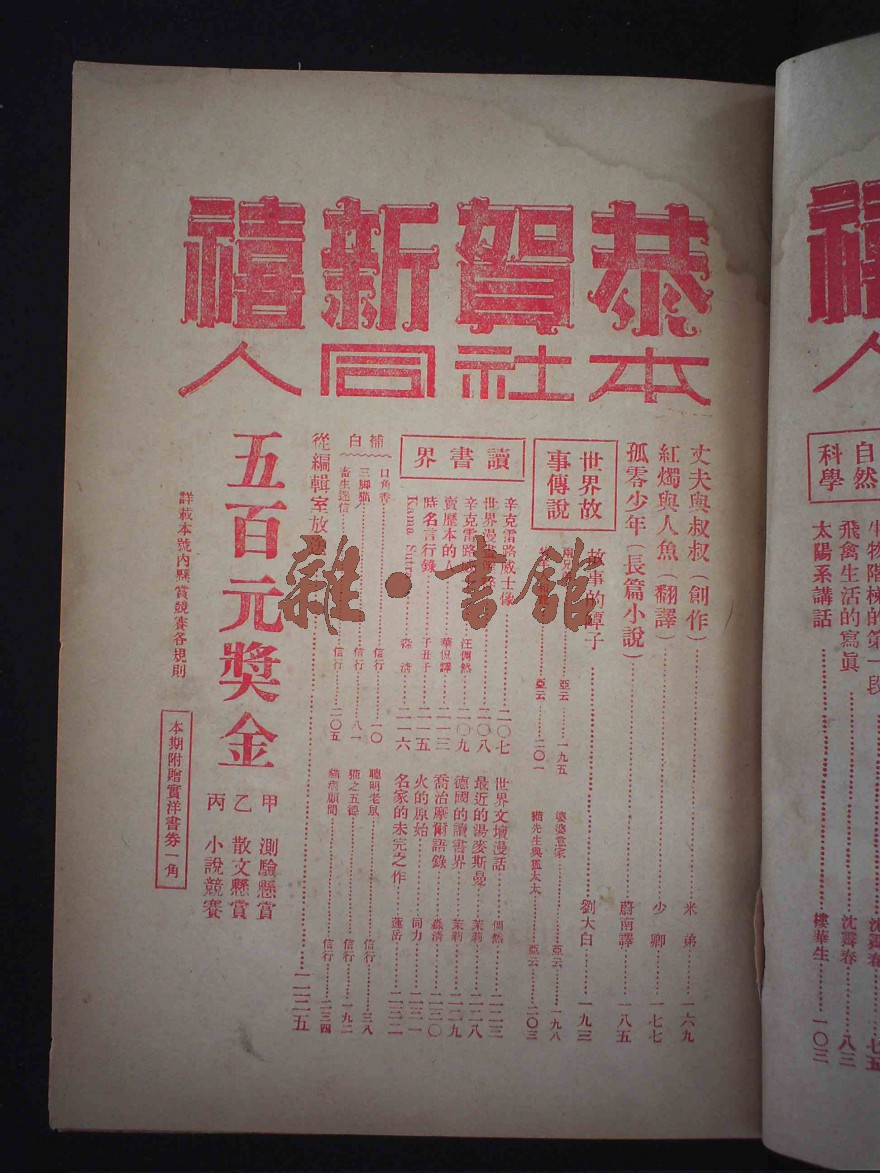 恭賀新禧
本社同人
丈夫與叔叔(創作)……米弟……一六九
紅燭與人魚(翻譯)……少卿……一七七
孤零少年(長篇小說)……蔚南譯……一八五
世界故事傳說
故事的罈子……劉大白……一九三
亞云……一九五
婆婆當家……亞云……一九八
亞云……二〇一
貓先生與藍太太……亞云……二〇三
讀書界
辛克雷路威士像……二〇七
世界漫……二〇八
辛克雷路……汪倜然……二〇九
賣歷本的人……華侃譯……二一三
時名言行錄……子丑子……二一五
Kama Sutra……淼清……二一六
世界文壇漫話……倜然……二二三
最近的湯麥斯曼……茉莉……二二八
德國的讀書界……茉莉……二二九
喬治摩爾語錄……淼清……二三〇
火的原始……同力……二三一
名家的未完之作……蓮岳……二三二
補白
口角香……信行……一〇
三脚貓……信行……八一
畜生迷信……信行……二〇五
聰明老鼠……信行……三八
猫之五德……信行……一九二
顧問……信行……二三四
從編輯室放……二二五
五百元獎金
甲 測驗懸賞
乙 散文懸賞
丙 小說競賽
詳載本號內懸賞競賽各規則
本期附贈實洋書券一角
禧
人
自然科學
生物階梯的第一段……沈霽春……七五
飛禽生活的寫眞……沈霽春……八三
太陽系講話……樓華生……一〇三
雜·書館